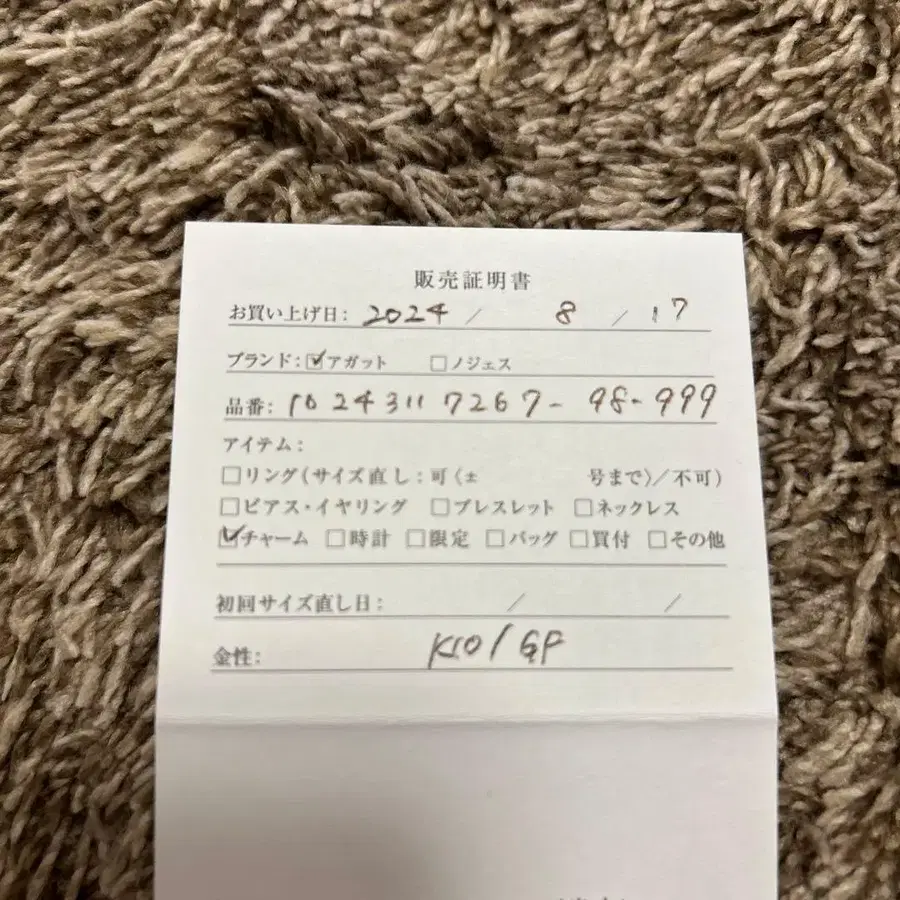 販売証明書
お買い上げ日: 2024 / 8 / 17
ブランド: ☑アガット □ノジェス
品番: 10 24311 7267- 98-999
アイテム:
□リング(サイズ直し: 可〈± 号まで〉/不可)
□ピアス・イヤリング □ブレスレット □ネックレス
☑チャーム □時計 □限定 □バッグ □買付 □その他
初回サイズ直し日: / /
金性: K10/GP